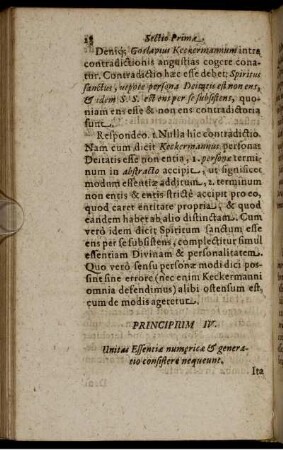 18 Sectio Prima
Deniq; Goslavius Keckermannum intra
contradictionis angustias cogere cona-
tur. Contradictio hæc esse debet: Spiritus
sanctus, utpote persona Deitatis est non ens,
& idem S. S. est ens per se subsistens, quo-
niam ens esse & non ens contradictoria
sunt.
Respondeo. 1. Nulla hic contradictio.
Nam cum dicit Keckermannus personas
Deitatis esse non entia, 1. personæ termi-
num in abstracto accipit, ut significet
modum essentiæ additum, 2. terminum
non entis & entis strictè accipit pro eo,
quod caret entitate propria, & quod
eandem habet ab alio distinctam. Cum
verò idem dicit Spiritum sanctum esse
ens per se subsistens, complectitur simul
essentiam Divinam & personalitatem.
Quo verò sensu personæ modi dici pos-
sint sine errore (nec enim Keckermanni
omnia defendimus) alibi ostensum est,
cum de modis ageretur.
PRINCIPIUM IV.
Unitas Essentiæ numericæ & genera-
tio consistere nequeunt.
Ita